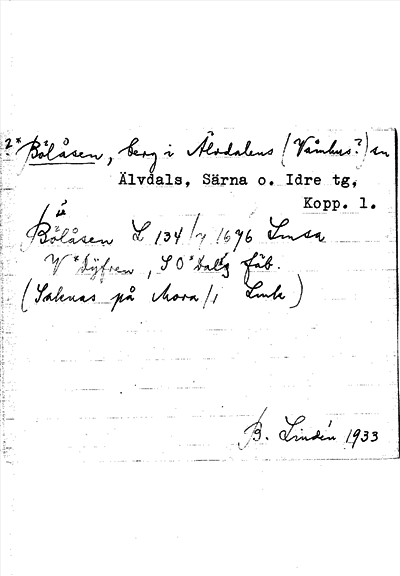 ?* Bölåsen, berg i Älvdalens (Våmhus?) sn
Älvdals, Särna o. Idre tg,
Kopp. l.
Bölåsen L 134/7 1696 Lmsa
V *Dyfren, SO *Dalg fäb.
(Saknas på Mora/i Lmk)
B. Lindén 1933